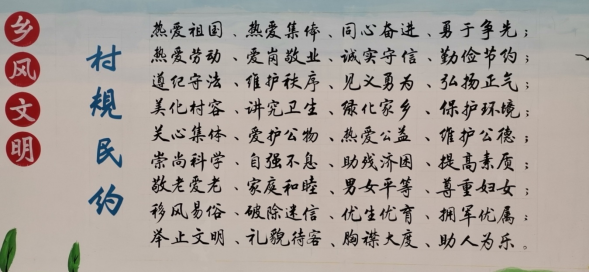 乡风文明
村规民约
热爱祖国、热爱集体、同心奋进、勇于争先；
热爱劳动、爱岗敬业、诚实守信、勤俭节约；
遵纪守法、维护秩序、见义勇为、弘扬正气；
美化村容、讲究卫生、绿化家乡、保护环境；
关心集体、爱护公物、热爱公益、维护公德；
崇尚科学、自强不息、助残济困、提高素质；
敬老爱老、家庭和睦、男女平等、尊重妇女；
移风易俗、破除迷信、优生优育、拥军优属；
举止文明、礼貌待客、胸襟大度、助人为乐。